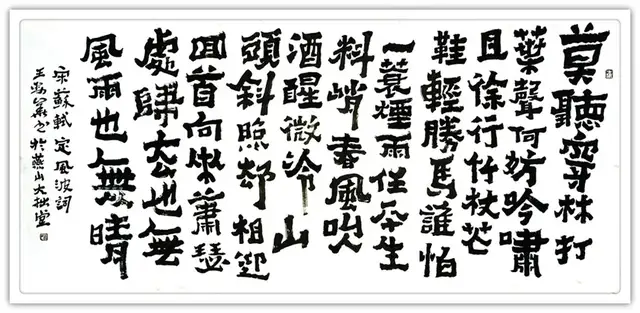 莫聽穿林打
葉聲何妨吟嘯
且徐行竹杖芒
鞋輕勝馬誰怕
一蓑煙雨任平生
料峭春風吹
酒醒微冷山
頭斜照却相迎
回首向來蕭瑟
處歸去也無
風雨也無晴
宋蘇軾定風波詞
王 書於燕山大拙堂